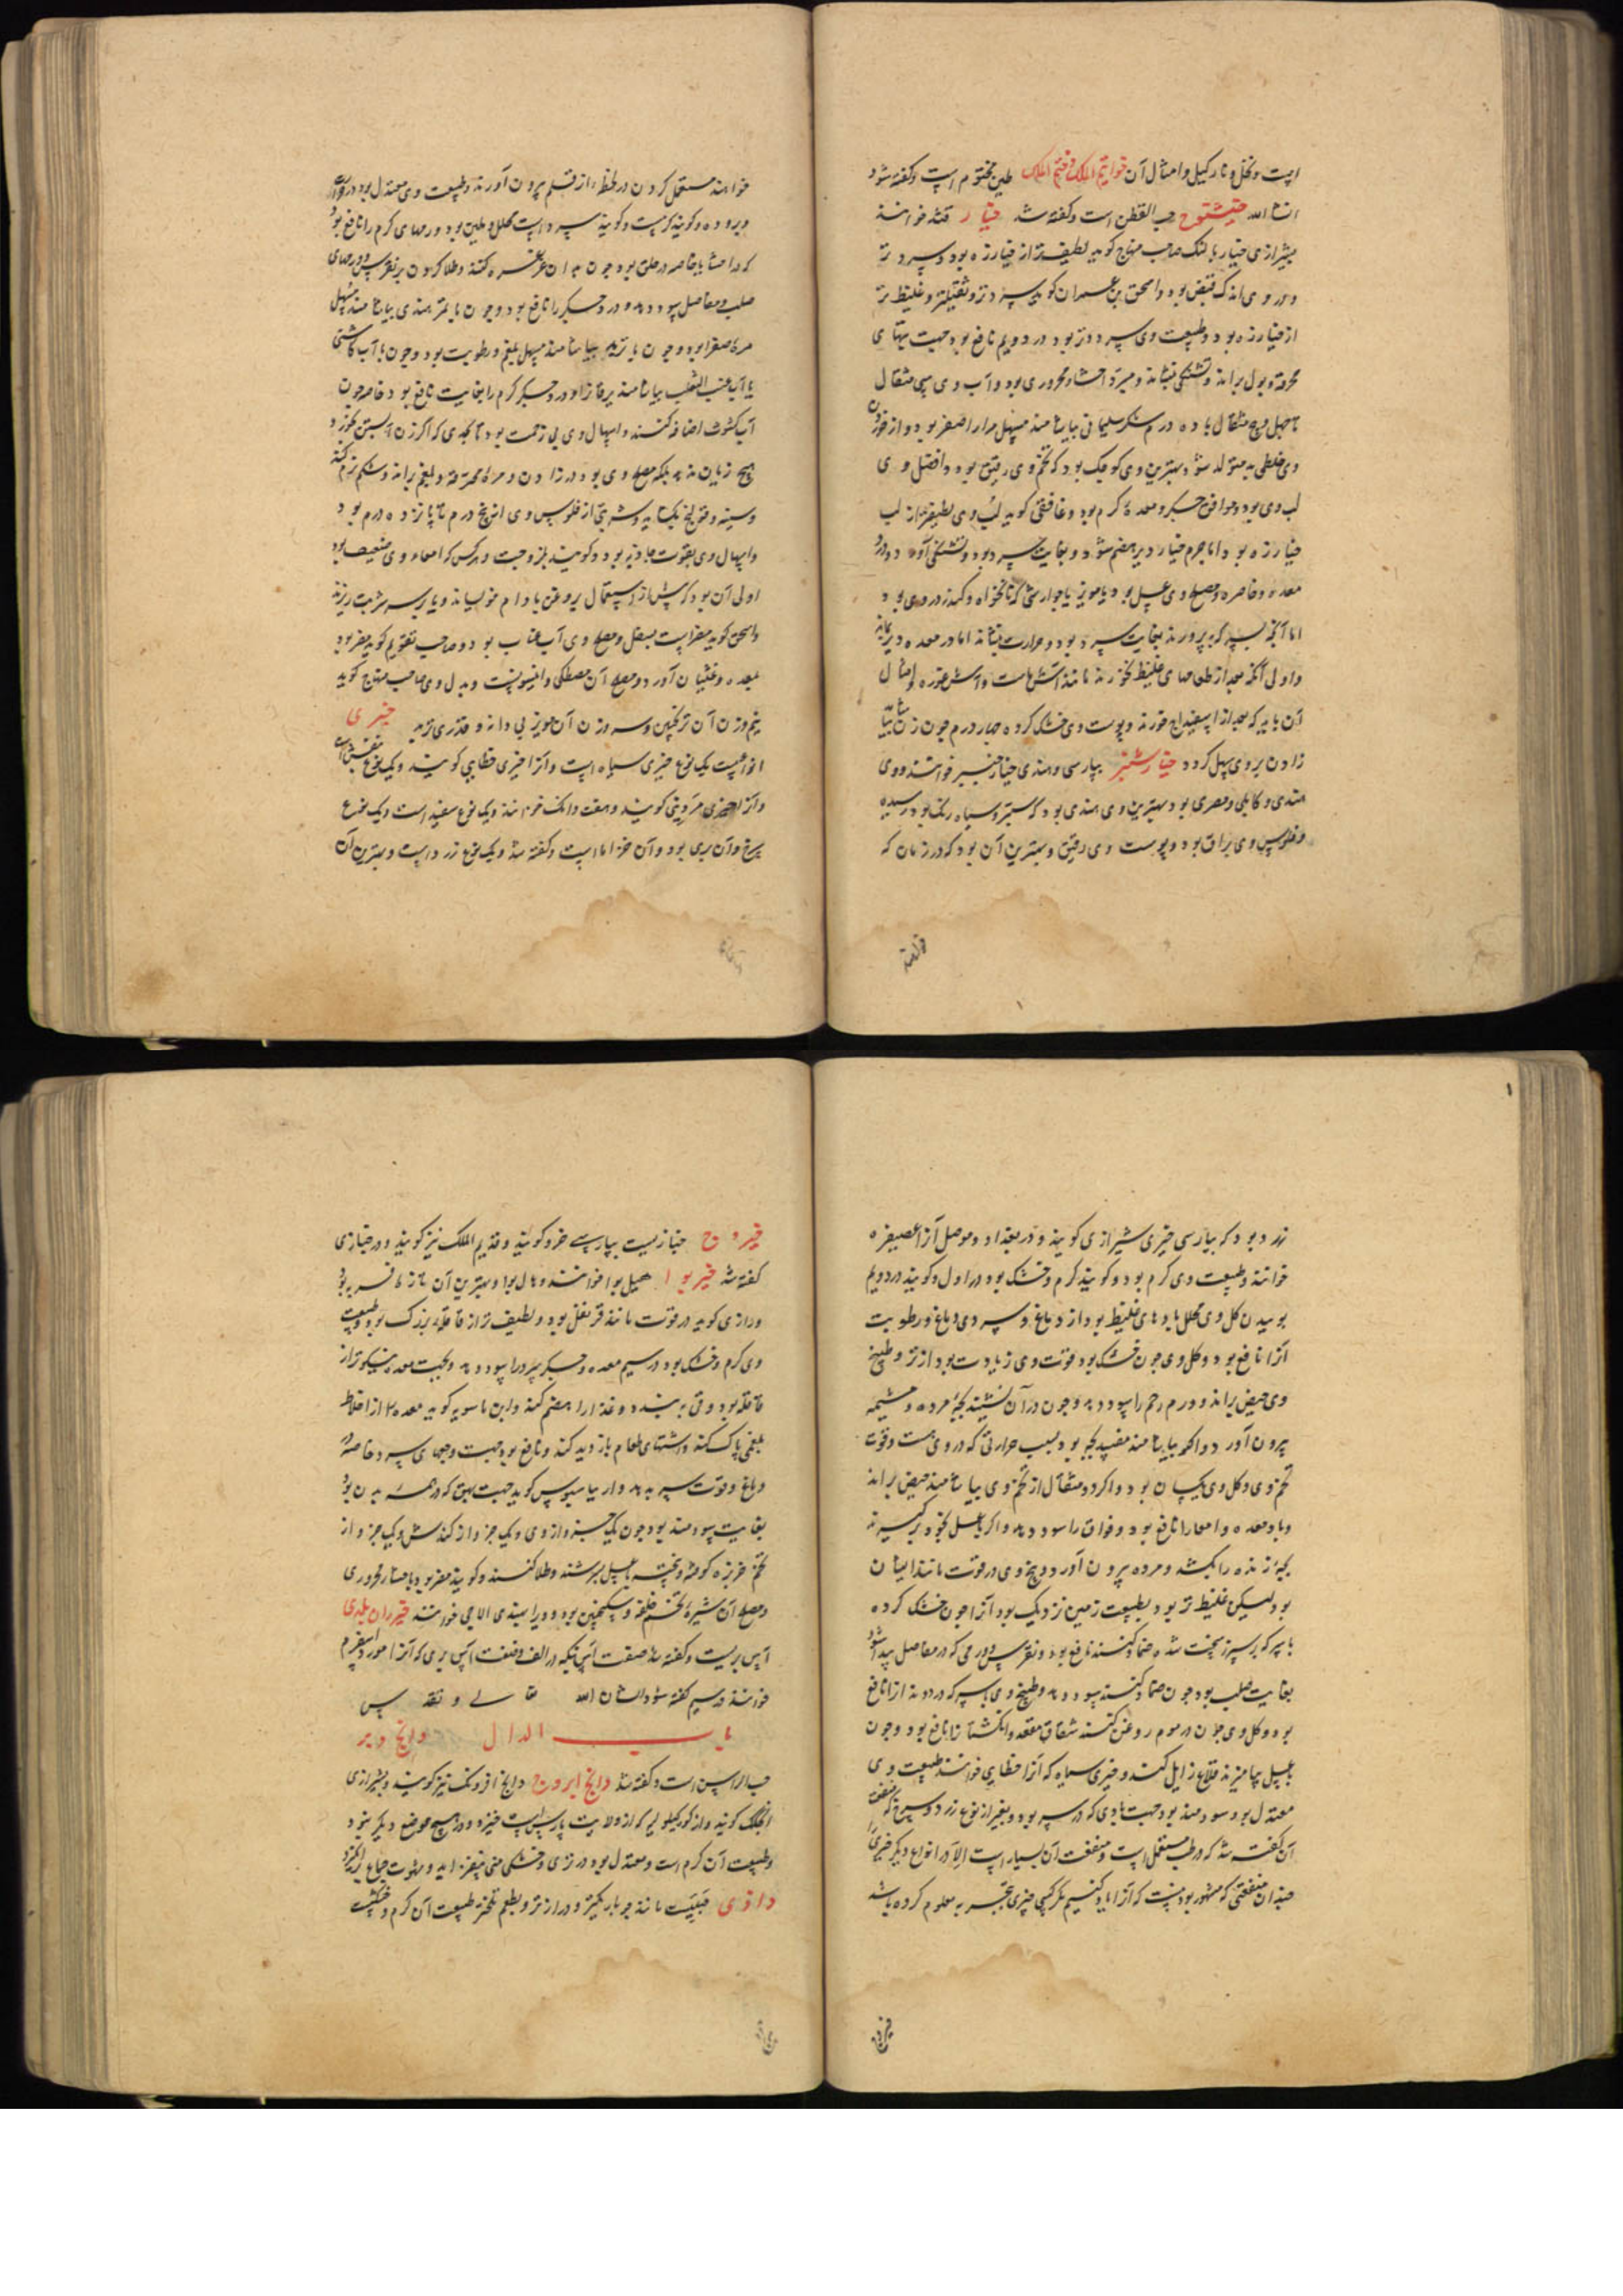 است و نخل و نارکیل و امثال آن خواتیم الملک و ختم الملک طین مختوم است و گفته شود
ان شاء الله خیشفوج حب القطن است و گفته شد خیار قثد خوانند
بشیرازی خیار بالنک صاحب منهاج کوید لطیف‌تر از خیارزه بود و سردتر
و در وی اندک قبض بود و اسحق بن عمران کوید سردتر و ثقیلتر و غلیظ‌تر
از خیارزه بود و طبیعت وی سرد و تر بود در دویم نافع بود جهت تبهای
محرقه و بول براند و تشنگی بنشاند و مبرد احشاء محروری بود و آب وی سی مثقال
تا چهل و پنج مثقال با ده درم شکر سلیمانی بیاشامند مسهل مرار اصفر بود و از خوردن
وی خلطی بد متولد شود و بهترین وی کوچک بود که تخم وی رقیق بود و افضل وی
لب وی بود و موافق جگر و معده گرم بود و غافقی کوید لب وی لطیفتر از لب
خیارزه بود و اما جرم خیار دیر هضم شود و بغایت سرد بود و تشنگی آورد و درد
معده و خاصره و مصلح وی عسل بود یا مویز یا جوارشی که نانخواه و کندر در وی بود
اما آنچه بسرکه پرورند بغایت سرد بود و حرارت بنشاند اما در معده دیر بماند
و اولی آنکه بعد از طعامهای غلیظ نخورند مانند آش ماست و آش غوره و امثال
آن باید که بعد از اسفیداج خورند و پوست وی خشک کرده چهار درم چون زن بیاشامد
زادن بر وی سهل گردد خیارشنبر بپارسی و هندی خیارچنبر خوانند و وی
هندی و کابلی و مصری بود بهترین وی هندی بود که ستبر و سیاه رنگ بود و رسیده
و فلوس وی براق بود و پوست وی رقیق و بهترین آن بود که در زمان که
خواهند مستعمل کردن در لحظه از قلم برون آورند و طبیعت وی معتدل بود در حرارت
و برودت و کویند گرمست و کویند سرد است محلل و ملین بود ورمهای گرم را نافع بود
که در احشا باشد خاصه در حلق بود چون بدان غرغره کنند و طلا کردن بر نقرس و ورمهای
صلب و مفاصل سود دهد و درد جگر را نافع بود و چون با تمر هندی بیاشامند مسهل
مره صفرا بود و چون با تربد بیاشامند مسهل بلغم و رطوبت بود و چون با آب کاسنی
یا آب عنب الثعلب بیاشامند یرقان و درد جگر گرم را بغایت نافع بود خاصه چون
آب کشوث اضافه کنند و اسهال وی بی زحمت بود تا بحدی که اگر زن آبستن بخورد
هیچ زیان ندهد بلکه مصلح وی بود در زادن و مره محترقه و بلغم براند و شکم نرم کند
و سینه و قولنج بگشاید و شربتی از فلوس وی از پنج درم تا پانزده درم بود
و اسهال وی بقوت جاذبه بود و کویند بلزوجت و هر کس که امعاء وی ضعیف بود
اولی آن بود که پیش از استعمال بروغن بادام چرب سازند و یا بر سر شربت ریزند
و اسحق کوید مضر است بسفل و مصلح وی آب عناب بود و صاحب تقویم کوید مضر بود
بمعده و غثیان آورد و مصلح آن مصطکی و انیسونست و بدل وی صاحب منهاج کوید
نیم وزن آن ترنجبین و سه وزن آن مویز بی دانه و قدری تربد خیری
انواعست یک نوع خیری سیاه است و آنرا خیری خطایی کویند و یک نوع بنفش است
و آنرا خیری مروینی کویند و هفت دانک خوانند و یک نوع سفید است و یک نوع
سرخ و آن بری بود و آن خزاما است و گفته شد و یک نوع زرد است و بهترین آن
زرد بود که بپارسی خیری شیرازی کویند و در بغداد و موصل آنرا عصیفره
خوانند و طبیعت وی گرم بود و کویند گرم و خشک بود در اول و کویند در دویم
بوییدن گل وی محلل بادهای غلیظ بود از دماغ و سردی دماغ و رطوبت
آنرا نافع بود و گل وی چون خشک بود قوت وی زیادت بود از تر و طبیخ
وی حیض براند و ورم رحم را سود دهد و چون در آن نشینند بچه مرده و مشیمه
برون آورد و اگر بیاشامند مفسد بچه بود بسبب حرارتی که در وی هست و قوت
تخم وی و گل وی یکسان بود و اگر دو مثقال از تخم وی بیاشامند حیض براند
و باد معده و امعا را نافع بود و فواق را سود دهد و اگر با عسل بخود برگیرند
بچه زنده را بکشد و مرده برون آورد و بیخ وی در قوت مانند ایشان
بود لیکن غلیظ‌تر بود بطبیعت زمین نزدیک بود آنرا چون خشک کرده
با سرکه بر سپرز سخت شده ضماد کنند نافع بود و نقرس و ورمی که در مفاصل پیدا شود
بغایت صلب بود چون ضماد کنند سود دهد و طبیخ وی با سرکه درد دندانرا نافع
بود و گل وی چون در موم روغن کنند شقاق مقعد و انگشتانرا نافع بود و چون
بعسل بیامیزند قلاع زایل کند و خیری سیاه که آنرا خطایی خوانند طبیعت وی
معتدل بود و سودمند بود جهت بادی که در سر بود و بغیر از نوع زرد و سرخ که منفعت
آن گفته شد که در طب مستعمل است و منفعت آن بسیار است الا در انواع دیگر خیری
چندان منفعتی که مشهور بود نیست که آنرا یاد کنیم مگر کسی چیزی بتجربه معلوم کرده باشد
خیروج خبازیست بپارسی خرو کویند و خدیم الملک نیز کویند و در خبازی
گفته شد خیربوا هیل بوا خوانند و هال بوا و بهترین آن تازه فربه بود
و رازی کوید در قوت مانند قرنفل بود و لطیف‌تر از قاقله بزرک بود و طبیعت
وی گرم و خشک بود در سیم معده و جگر سرد را سود دهد و بجهت معده نیکوتر از
قاقله بود و قی ببندد و غذا را هضم کند و ابن ماسویه کوید معده را از اخلاط
بلغمی پاک کند و اشتهای طعام بازدید کند و نافع بود جهت وجعهای سرد خاصه
دماغ و قوت سر بدهد و اریباسیوس کوید جهت بهق که در همه بدن بود
بغایت سودمند بود چون یک جزو از وی و یک جزو از کندش و یک جزو از
تخم خربزه کوفته و بیخته بعسل بسرشند و طلا کنند و کویند مضر بود باحشاء محروری
و مصلح آن شیره تخم خرفه و سکنجبین بود و ویرا بهندی الاچی خوانند خیزران بلدی
آس بریست و گفته شد صفت آس بیکه در الف و صفت آس بری که آنرا مورد اسفرم
خوانند در میم گفته شود ان شاء الله تعالی و تقدس
باب الدال دانج دبر
حب الراس است و گفته شد دانج ابروج دانج افرونک نیز کویند و بشیرازی
انجکک کویند و از کوه کیلویه که از ولایت پارس است خیزد و در هیچ موضع دیگر نبود
و طبیعت آن گرم است و معتدل بود در تری و خشکی منی بیفزاید و شهوت جماع برانگیزد
داذی حبیست مانند جو باریکتر و درازتر و بطعم تلختر طبیعت آن گرم و خشکست